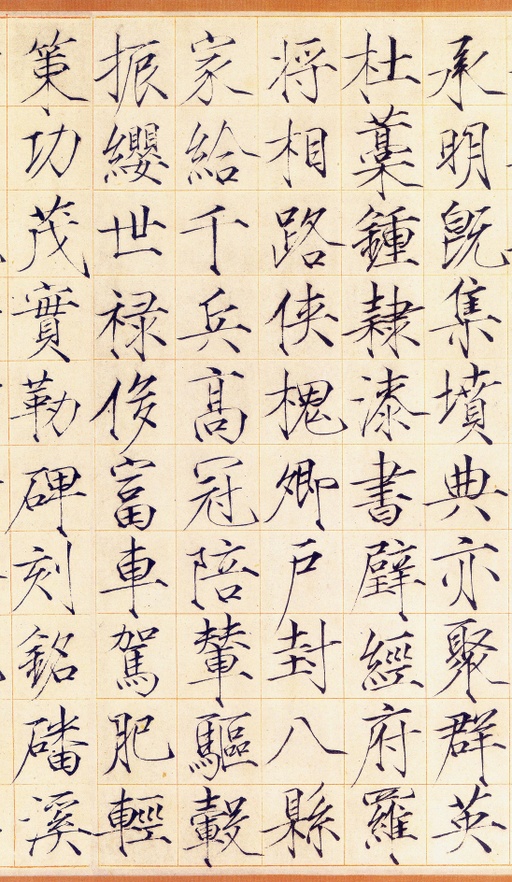 承明既集墳典亦聚群英
杜藁鍾隸漆書壁經府羅
将相路俠槐卿戸封八縣
家給千兵高冠陪輦驅轂
振纓世禄侈富車駕肥輕
策功茂實勒碑刻銘磻溪